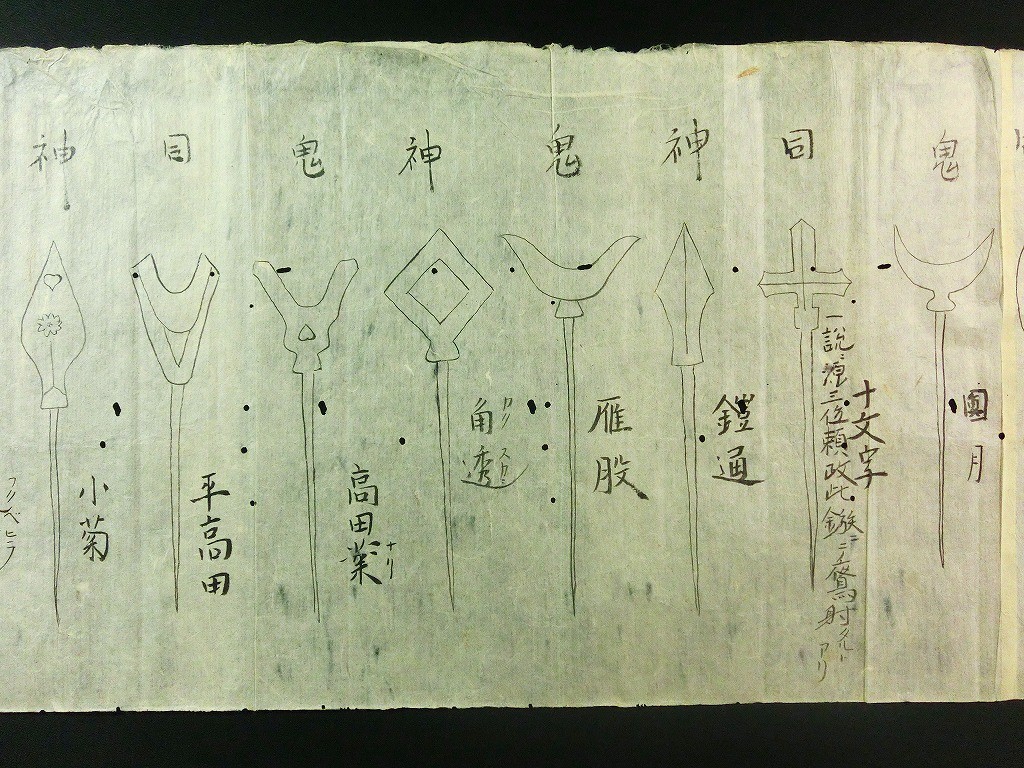 鬼
圓月
同
十文字
一説ニ源三位頼政此鏃ニテ鵺射タルトアリ
神
鎧通
鬼
雁股
神
角透
カク スカシ
鬼
高田葉
ナリ
同
平高田
神
小菊